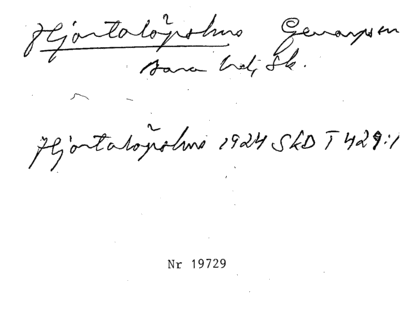 Hjortalöpshus Genarpsm
Bara hd, Sk.
Hjortalöpshus 1924 SkD T 429:1
Nr 19729